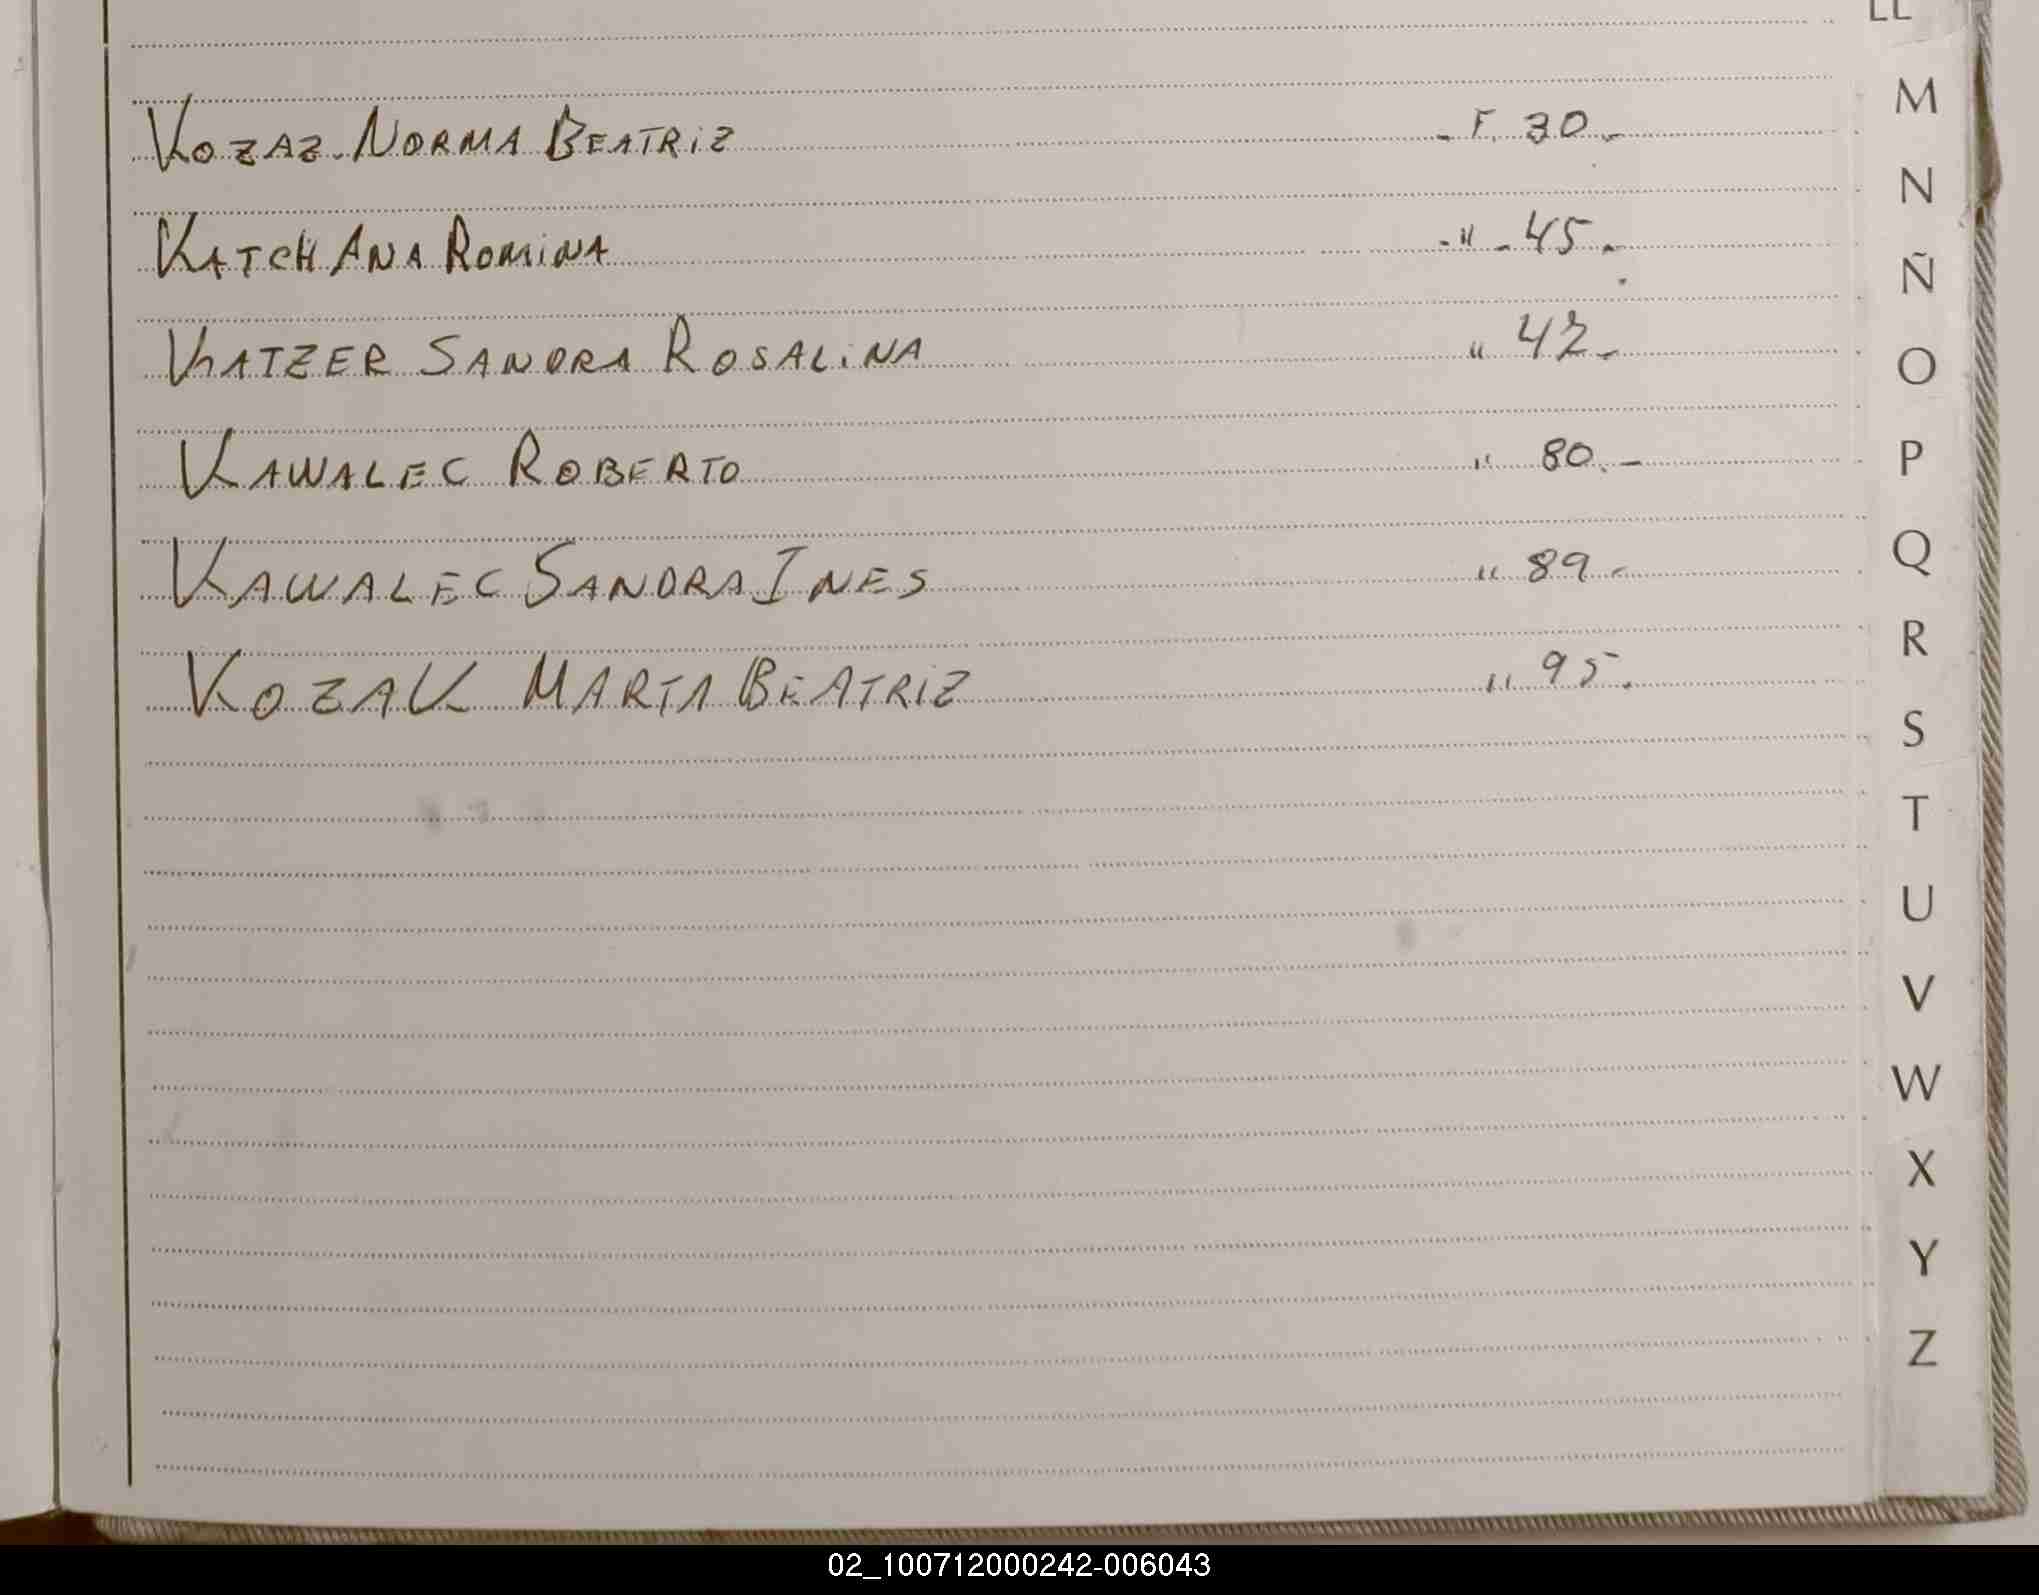 LL
KOZAZ NORMA BEATRIZ - F. 30 -
KATCH ANA ROMINA - " - 45 -
KATZER SANDRA ROSALINA " 42 -
KAWALEC ROBERTO " 80. -
KAWALEC SANDRA INES " 89 -
KOZAK MARTA BEATRIZ " 95.
M
N
Ñ
O
P
Q
R
S
T
U
V
W
X
Y
Z
02_100712000242-006043